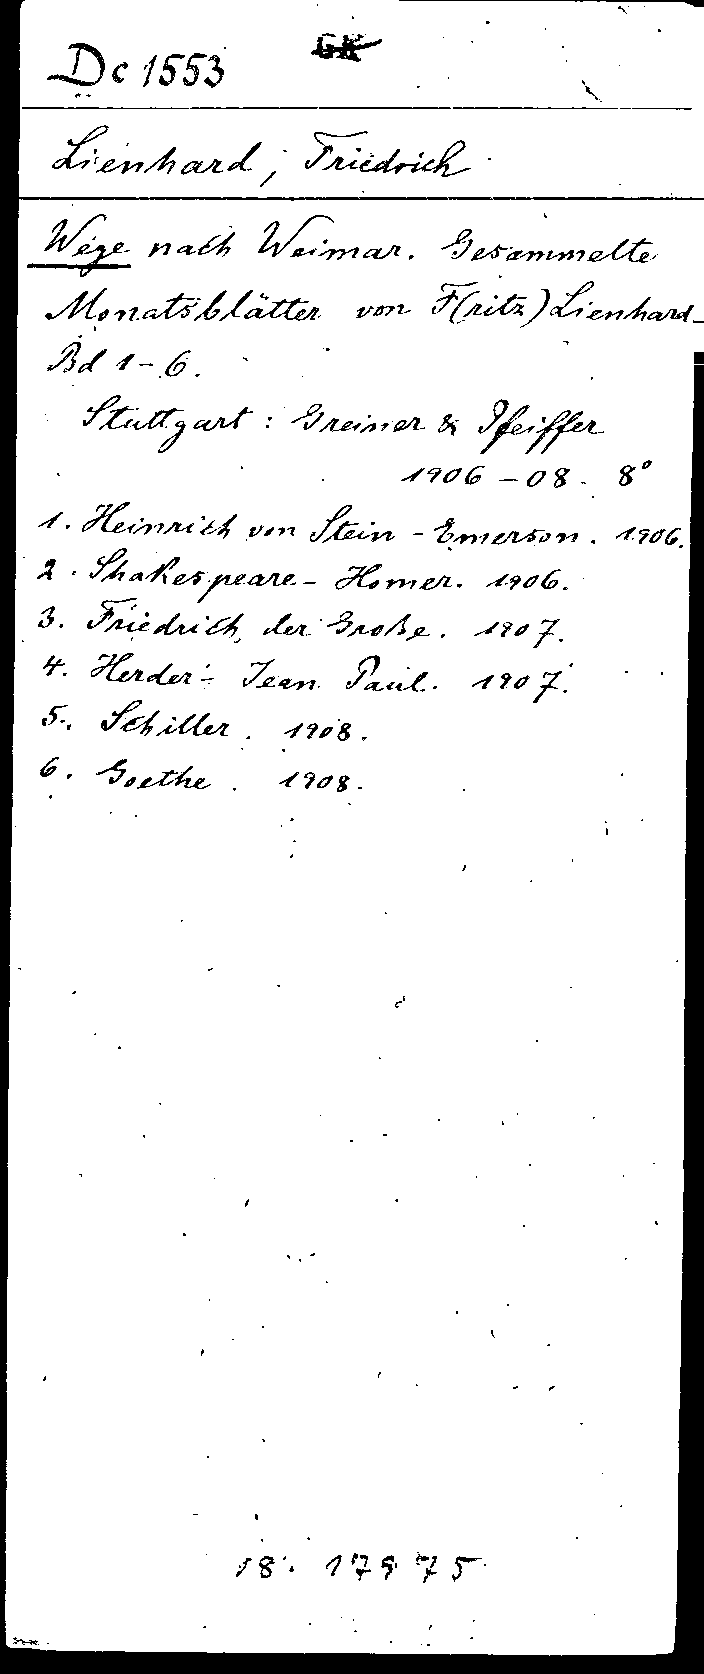 Dc 1553
Lienhard, Friedrich
Wege nach Weimar. Gesammelte
Monatsblätter von F(ritz) Lienhard_
Bd 1-6.
Stuttgart: Greiner & Pfeiffer
1906-08. 8°
1. Heinrich von Stein-Emerson. 1906.
2. Shakespeare-Homer. 1906.
3. Friedrich der Große. 1907.
4. Herder-Jean Paul. 1907.
5. Schiller. 1908.
6. Goethe. 1908.
17975